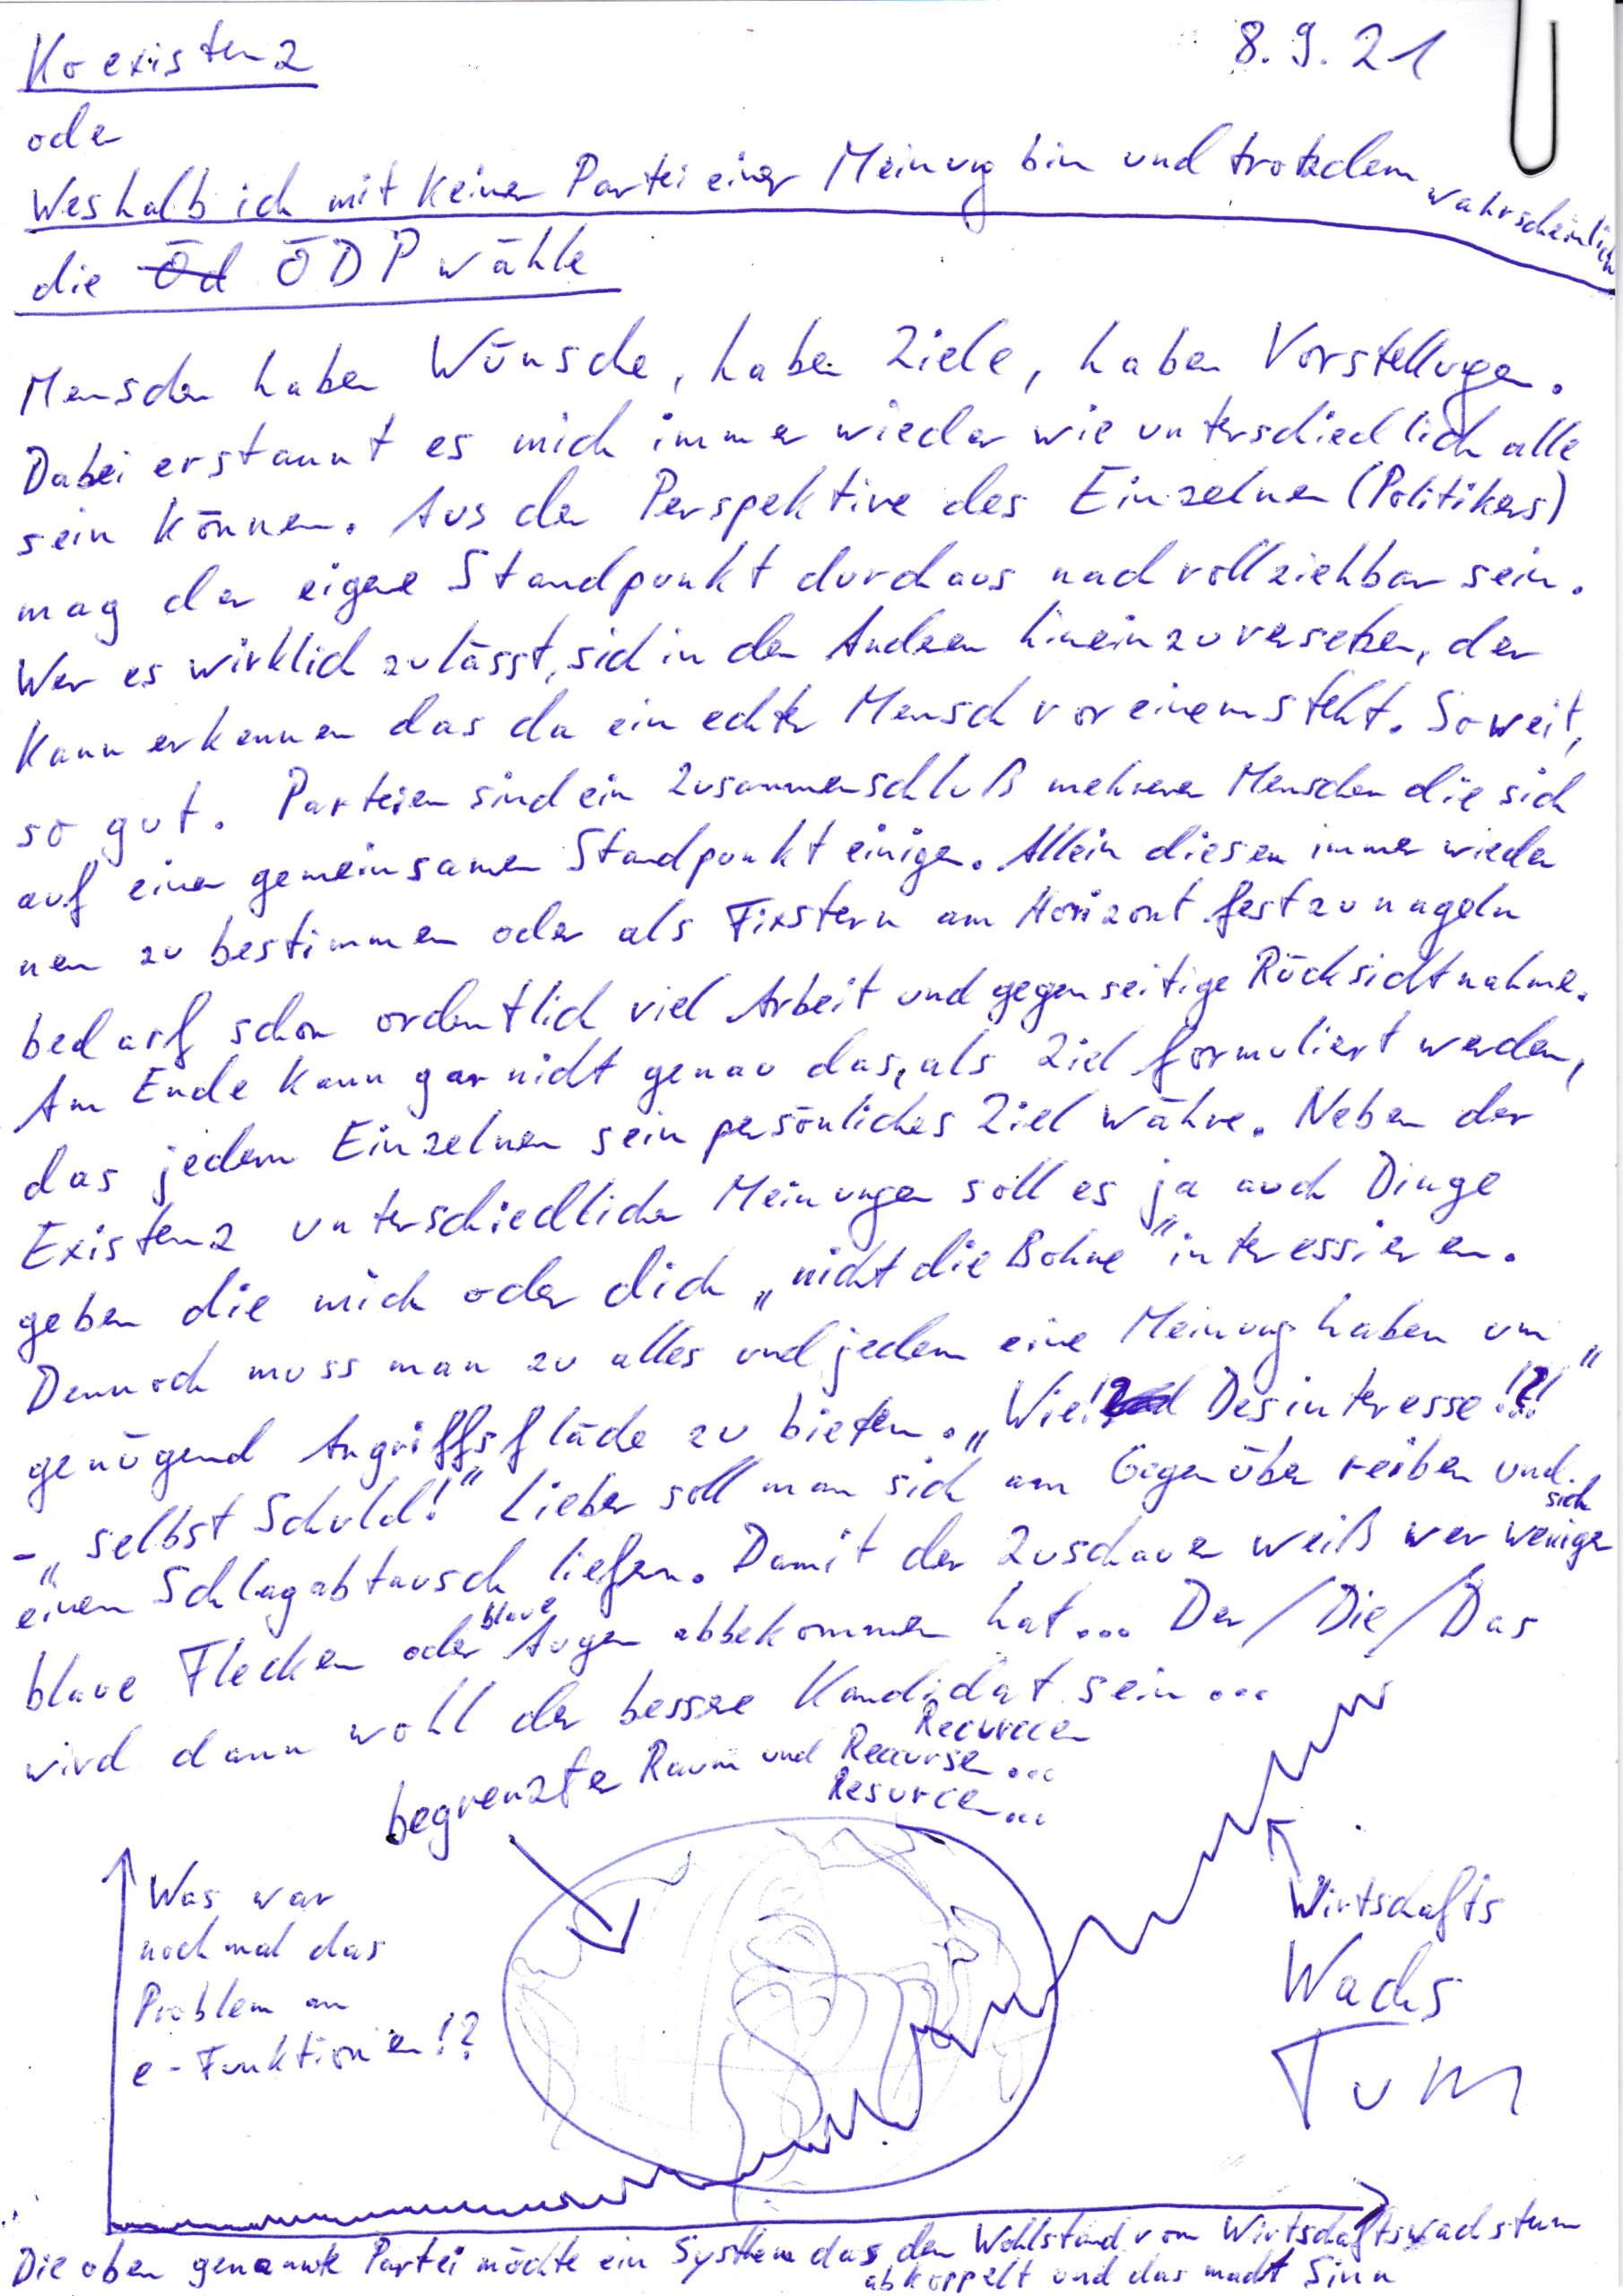 Koexistenz
8.9.21
oder
Weshalb ich mit keiner Partei einer Meinung bin und trotzdem wahrscheinlich
die Öd ÖDP wähle
Menschen haben Wünsche, haben Ziele, haben Vorstellungen.
Dabei erstaunt es mich immer wieder wie unterschiedlich alle
sein können. Aus der Perspektive des Einzelnen (Politikers)
mag der eigene Standpunkt durchaus nachvollziehbar sein.
Wer es wirklich zulässt, sich in den Anderen hineinzuversetzen, der
kann erkennen das da ein echter Mensch vor einem steht. Soweit,
so gut. Parteien sind ein Zusammenschluß mehrerer Menschen die sich
auf einen gemeinsamen Standpunkt einigen. Allein diesen immer wieder
neu zu bestimmen oder als Fixstern am Horizont festzunageln
bedarf schon ordentlich viel Arbeit und gegenseitige Rücksichtnahme.
Am Ende kann gar nicht genau das, als Ziel formuliert werden,
das jedem Einzelnen sein persönliches Ziel währe. Neben der
Existenz unterschiedlicher Meinungen soll es ja auch Dinge
geben die mich oder dich „nicht die Bohne" interessieren.
Dennoch muss man zu alles und jedem eine Meinung haben um
genügend Angriffsfläche zu bieten. „Wie!? Desinteresse!?!"
- „selbst Schuld!" Lieber soll man sich am Gegenüber reiben und sich
einen Schlagabtausch liefern. Damit der Zuschauer weiß wer weniger
blaue Flecken oder blaue Augen abbekommen hat... Der/Die/Das
wird dann wohl der bessere Kandidat sein...
begrenzter Raum und Recurse...
Recurccen
Resurcen...
Was war
noch mal das
Problem an
e-Funktionen!?
Wirtschafts
Wachs
Tum
Die oben genannte Partei möchte ein System das den Wohlstand vom Wirtschaftswachstum
abkoppelt und das macht Sinn